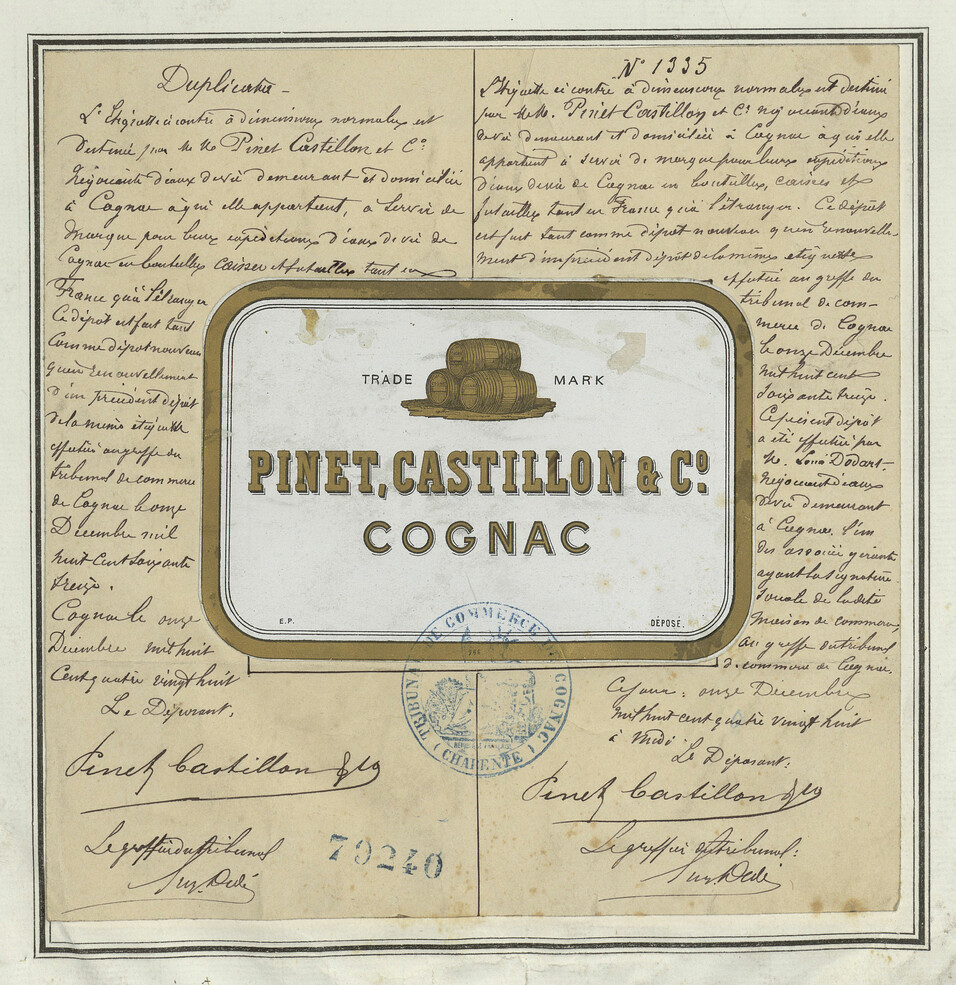 Duplicata
L'Etiquette ci contre à dimensions normales est
destinée par MM Pinet Castillon et Cº
Négociants d'eaux de vie demeurant et domiciliés
à Cognac à qui elle appartient, à servir de
Marque pour leurs expéditions d'eaux de vie de
Cognac en bouteilles caisses et futailles tant en
France qu'à l'étranger
Ce dépôt est fait tant
comme dépôt nouveau
qu'en renouvellement
d'un précédent dépôt
de la même étiquette
effectué au greffe du
tribunal de commerce
de Cognac le onze
Décembre mil
huit cent soixante
treize.
Cognac le onze
Décembre mil huit
Cent quatre vingt huit
Le Déposant,
Pinet Castillon & Co
Le greffier du tribunal
79240
Nº 1335
L'Etiquette ci contre à dimensions normales est destinée
par MM. Pinet Castillon et Cº négociants d'eaux
de vie demeurant et domiciliés à Cognac à qui elle
appartient à servir de marque pour leurs expéditions
d'eaux de vie de Cognac en bouteilles, caisses et
futailles tant en France qu'à l'étranger. Ce dépôt
est fait tant comme dépôt nouveau qu'en renouvelle-
ment d'un précédent dépôt de la même étiquette
effectué au greffe du
tribunal de com-
merce de Cognac
le onze Décembre
mil huit cent
soixante treize.
Ce présent dépôt
a été effectué par
M. Louis Dodart
Négociant d'eaux
de vie demeurant
à Cognac l'un
des associés gérants
ayant la signature
sociale de ladite
maison de commerce,
au greffe du tribunal
de commerce de Cognac.
Ce jour: onze Décembre
mil huit cent quatre vingt huit
à Midi.
Le Déposant:
Pinet Castillon & Co
Le greffier du tribunal:
TRADE MARK
PINET, CASTILLON & Cº.
COGNAC
E.P. DÉPOSÉ.
TRIBUNAL DE COMMERCE DE COGNAC
(CHARENTE)